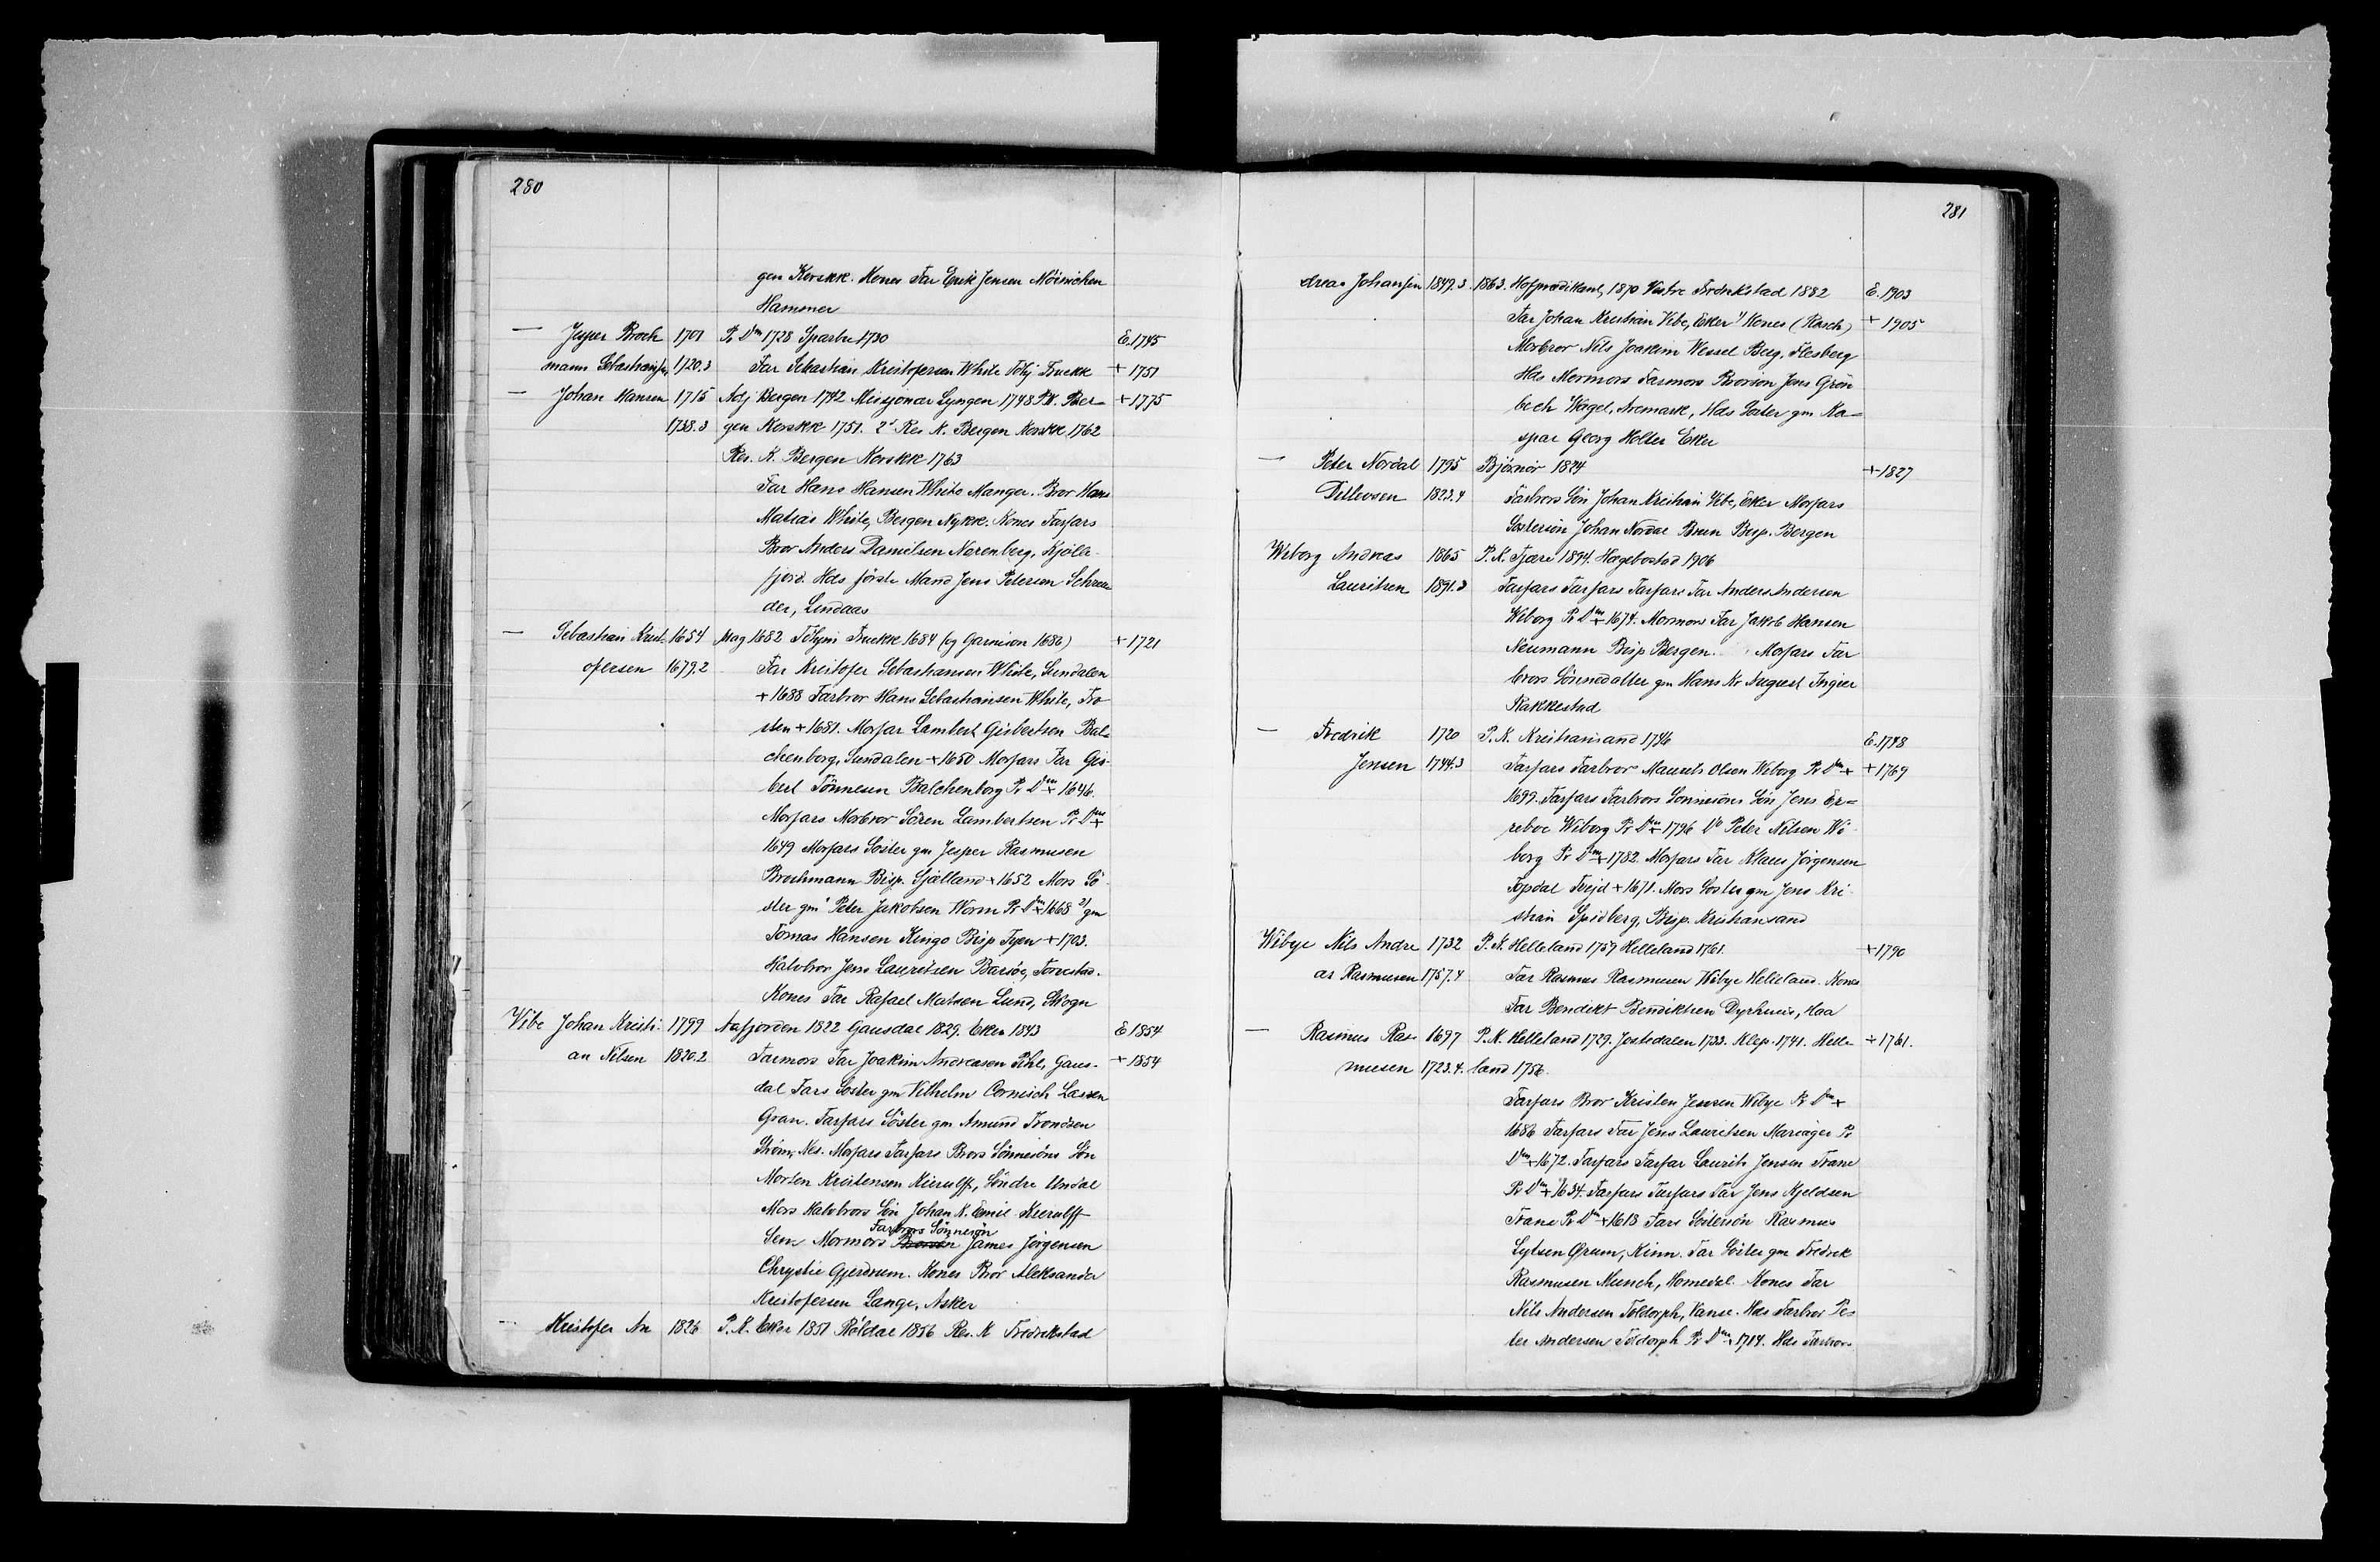 280
gen Korskk. Kones Far Erik Jensen Möinichen
Hammer
— Jesper Broch 1701 Pr Dm 1728 Sparbu 1730 E. 1745
mann Sebastiansen 1720.3 Far Sebastian Kristofersen White Tölyi Fruekk + 1751
— Johan Hansen 1715 Adj Bergen 1742 Missjonær Lyngen 1748 P.K. Ber- + 1775
1738.3 gen Korskk 1751. 2' Res K. Bergen Korskk 1762
Res. K. Bergen Korskk 1763
Far Hans Hansen White Manger. Bror Hans
Matias White, Bergen Nykk. Kones Farfars
Bror Anders Danielsen Norenberg, Kjöle-
fjord. Hds förste Mand Jens Petersen Schreu
der, Lindaas
— Sebastian Krist- 1654 Mag 1682 Tölyni Fruekk 1684 (og Garnison 1686) + 1721
ofersen 1679.2 Far Kristofer Sebastiansen White, Sundalen
+ 1688 Farbror Hans Sebastiansen White, Fro
sten + 1681. Morfar Lambert Gisbertsen Bal-
chenborg, Sundalen + 1650 Morfars Far Gis-
bert Tönnesen Balchenborg Pr Dm + 1646.
Morfars Morbror Sören Lambertsen Pr Dm +
1649 Morfars Söster gm Jesper Rasmusen
Brochmann Bisp. Sjælland + 1652 Mors Sö-
ster gm ¹ Peter Jakobsen Worm Pr Dm + 1668 2) gm
Tomas Hansen Kingo Bisp Fyen + 1703.
Halvbror Jens Lauritsen Barsöe, Torvestad.
Kones Far Rafael Matsen Lund, Skogn
Vibe Johan Kristi- 1799 Aafjorden 1822 Gausdal 1829. Eker 1843 E 1854
an Nilsen 1820.2 Farmors Far Joakim Andreasen Pihl, Gaus- + 1854
dal Fars Söster gm Vilhelm Cornisch Lassen
Gran. Farfars Söster gm Amund Trondsen
Ström, Nes. Morfars Farfars Brors Sönnesöns Sön
Morten Kristensen Kierulff, Söndre Undal
Mors Halvbrors Sön Johan K. Emil Kierulff
Farbrors Sönnesön
Sem Mormors Brorsön James Jörgensen
Chrystie Gjerdrum. Kones Bror Aleksander
Kristofersen Lange, Asker
— Kristofer An 1826 P. K. Eker 1851 Röldal 1856 Res. K Fredrikstad
281
dreas Johansen 1849.3 1863. Hofprædikant, 1870 Vestre Fredrikstad 1882 E. 1903
Far Johan Kristian Vibe, Eker 1) Kones (Rasch) + 1905
Morbror Nils Joakim Wessel Berg, Flesberg
Hds Mormors Farmors Brorson Jens Grön
bech Wagel, Aremark, Hds Söster gm Ka-
spar Georg Holter Eker
— Peter Nordal 1795 Björnör 1824 + 1827
Ditlevsen 1823.4 Farbrors Sön Johan Kristian Vibe, Eker Morfars
Söstersön Johan Nordal Brun Bisp. Bergen
Wiborg Andreas 1865 P. K. Fjære 1894. Hægebostad 1906
Lauritsen 1891.3 Farfars Farfars Farfars Far Anders Andersen
Wiborg Pr Dm + 1674. Mormors Far Jakob Hansen
Neumann Bisp Bergen. Morfars Far
brors Sönnedatter gm Hans Kr August Ingier
Rakkestad
— Fredrik 1720 P. K. Kristiansand 1746 E. 1748
Jensen 1744.3 Farfars Farbror Maurits Olsen Wiborg Pr Dm + + 1769
1699. Farfars Farbrors Sönnesöns Sön Jens Er=
reboe Wiborg Pr Dm + 1796 Do Peter Nilsen Wi-
borg Pr Dm + 1782. Morfars Far Klaus Jörgensen
Topdal Tveid + 1671. Mors Söster gm Jens Kri-
stian Spidberg, Bisp. Kristiansand
Wibye Nils Andre 1732 P. K. Helleland 1757 Helleland 1761. + 1790
as Rasmusen 1757.4 Far Rasmus Rasmusen Wibye Helleland. Kones
Far Bendikt Bendiktsen Dyrhuus, Haa
— Rasmus Ras- 1697 P. K. Helleland 1729. Jostedalen 1733. Klep 1741. Helle- + 1761.
musen 1723.4. land 1756.
Farfars Bror Kristen Jensen Wibye Pr Dm +
1686 Farfars Far Jens Lauritsen Mariager Pr
Dm + 1672. Farfars Farfar Laurits Jensen Trane
Pr Dm + 1634. Farfars Farfars Far Jens Kjeldsen
Trane Pr Dm + 1618 Fars Söstersön Rasmus
Lytsen Grum, Kinn. Far Söster gm Fredrik
Rasmusen Munch, Homedal. Kones Far
Nils Andersen Toldorph, Vanse. Hds Farbror Pe-
ter Andersen Toldorph Pr Dm + 1714. Hds Farbrors